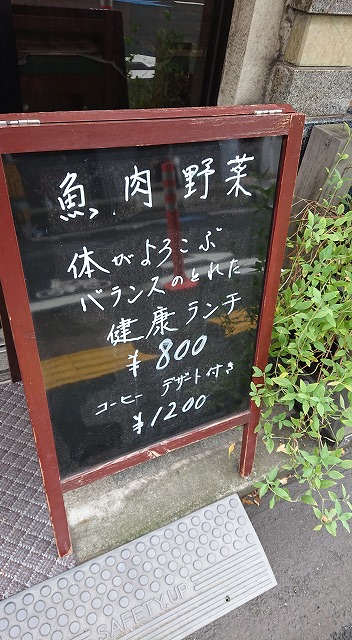 魚.肉 野菜
体がよろこぶ
バランスのとれた
健康ランチ
¥800
コーヒー デザート付き
¥1200
SAFETY UP